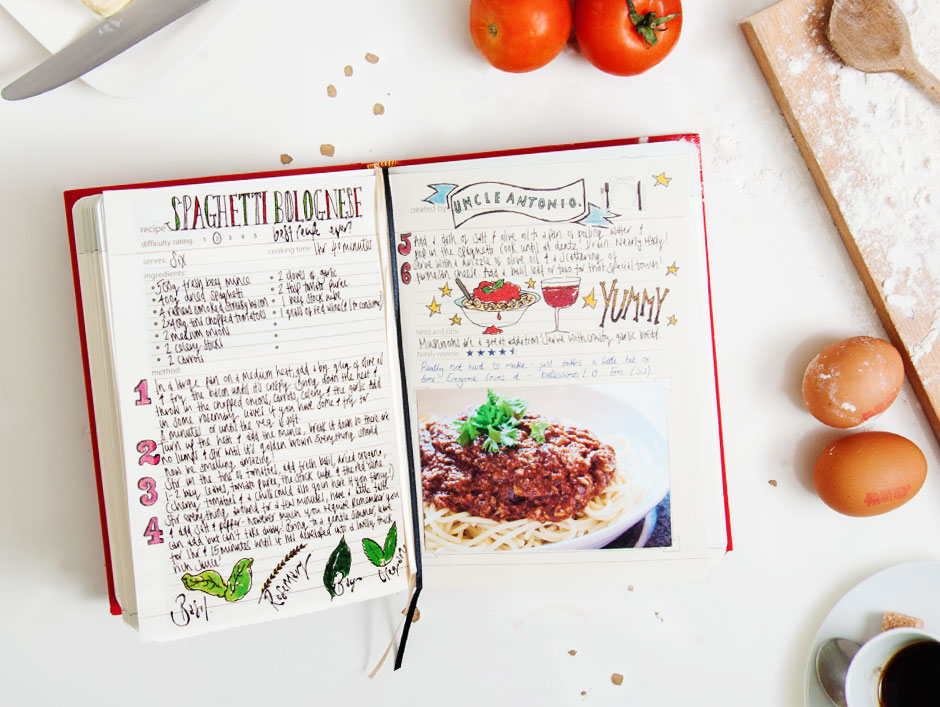 SPAGHETTI BOLOGNESE
recipe
difficulty rating: 1 2 3 4 5 best
serves: Six
cooking time: 1hr 40 minutes
ingredients:
500g fresh beef mince
400g dried spaghetti
smoked streaky bacon
tins chopped tomatoes
2 medium onions
2 celery sticks
2 carrots
2 cloves of garlic
2 tbsp tomato puree
1 beef stock cube
1 glass of red wine
method:
1 In a large pan on a medium heat, add a big glug of olive oil
& fry the bacon until it's crispy. Bring down the heat &
throw in the chopped onions, carrots, celery & the garlic. Add
in some rosemary leaves if you have some & fry for
minutes or until the veg is soft.
2 Turn up the heat & add the mince, break it down so there are
no lumps & stir until it's golden brown. Everything should
now be smelling amazing.
3 Stir in the tins of tomatoes, add fresh basil, dried oregano,
1-2 bay leaves, tomato puree, the stock cube & the red wine.
4 Stir everything, wait for a few minutes, have a little taste
& add salt & pepper - however much you require. Remember you
can add but can't take away! Bring to a gentle simmer, leave
for 1hr & 15 minutes until it has developed into a lovely, thick
rich sauce!
Basil
Rosemary
Bay
Oregano
created by: UNCLE ANTONIO.
5 Add a dash of salt & olive oil to a pan of boiling water &
pop in the spaghetti. Cook until al dente! Drain. Nearly ready!
6 Serve with a drizzle of olive oil & a scattering of
parmesan cheese. Add a basil leaf or two for that special touch!
YUMMY
hints and tips:
Mushrooms are a great addition! Serve with crusty garlic bread.
family review:
Really not hard to make - just takes a little bit of
time. Everyone loves it - bellissimo! (Sis)